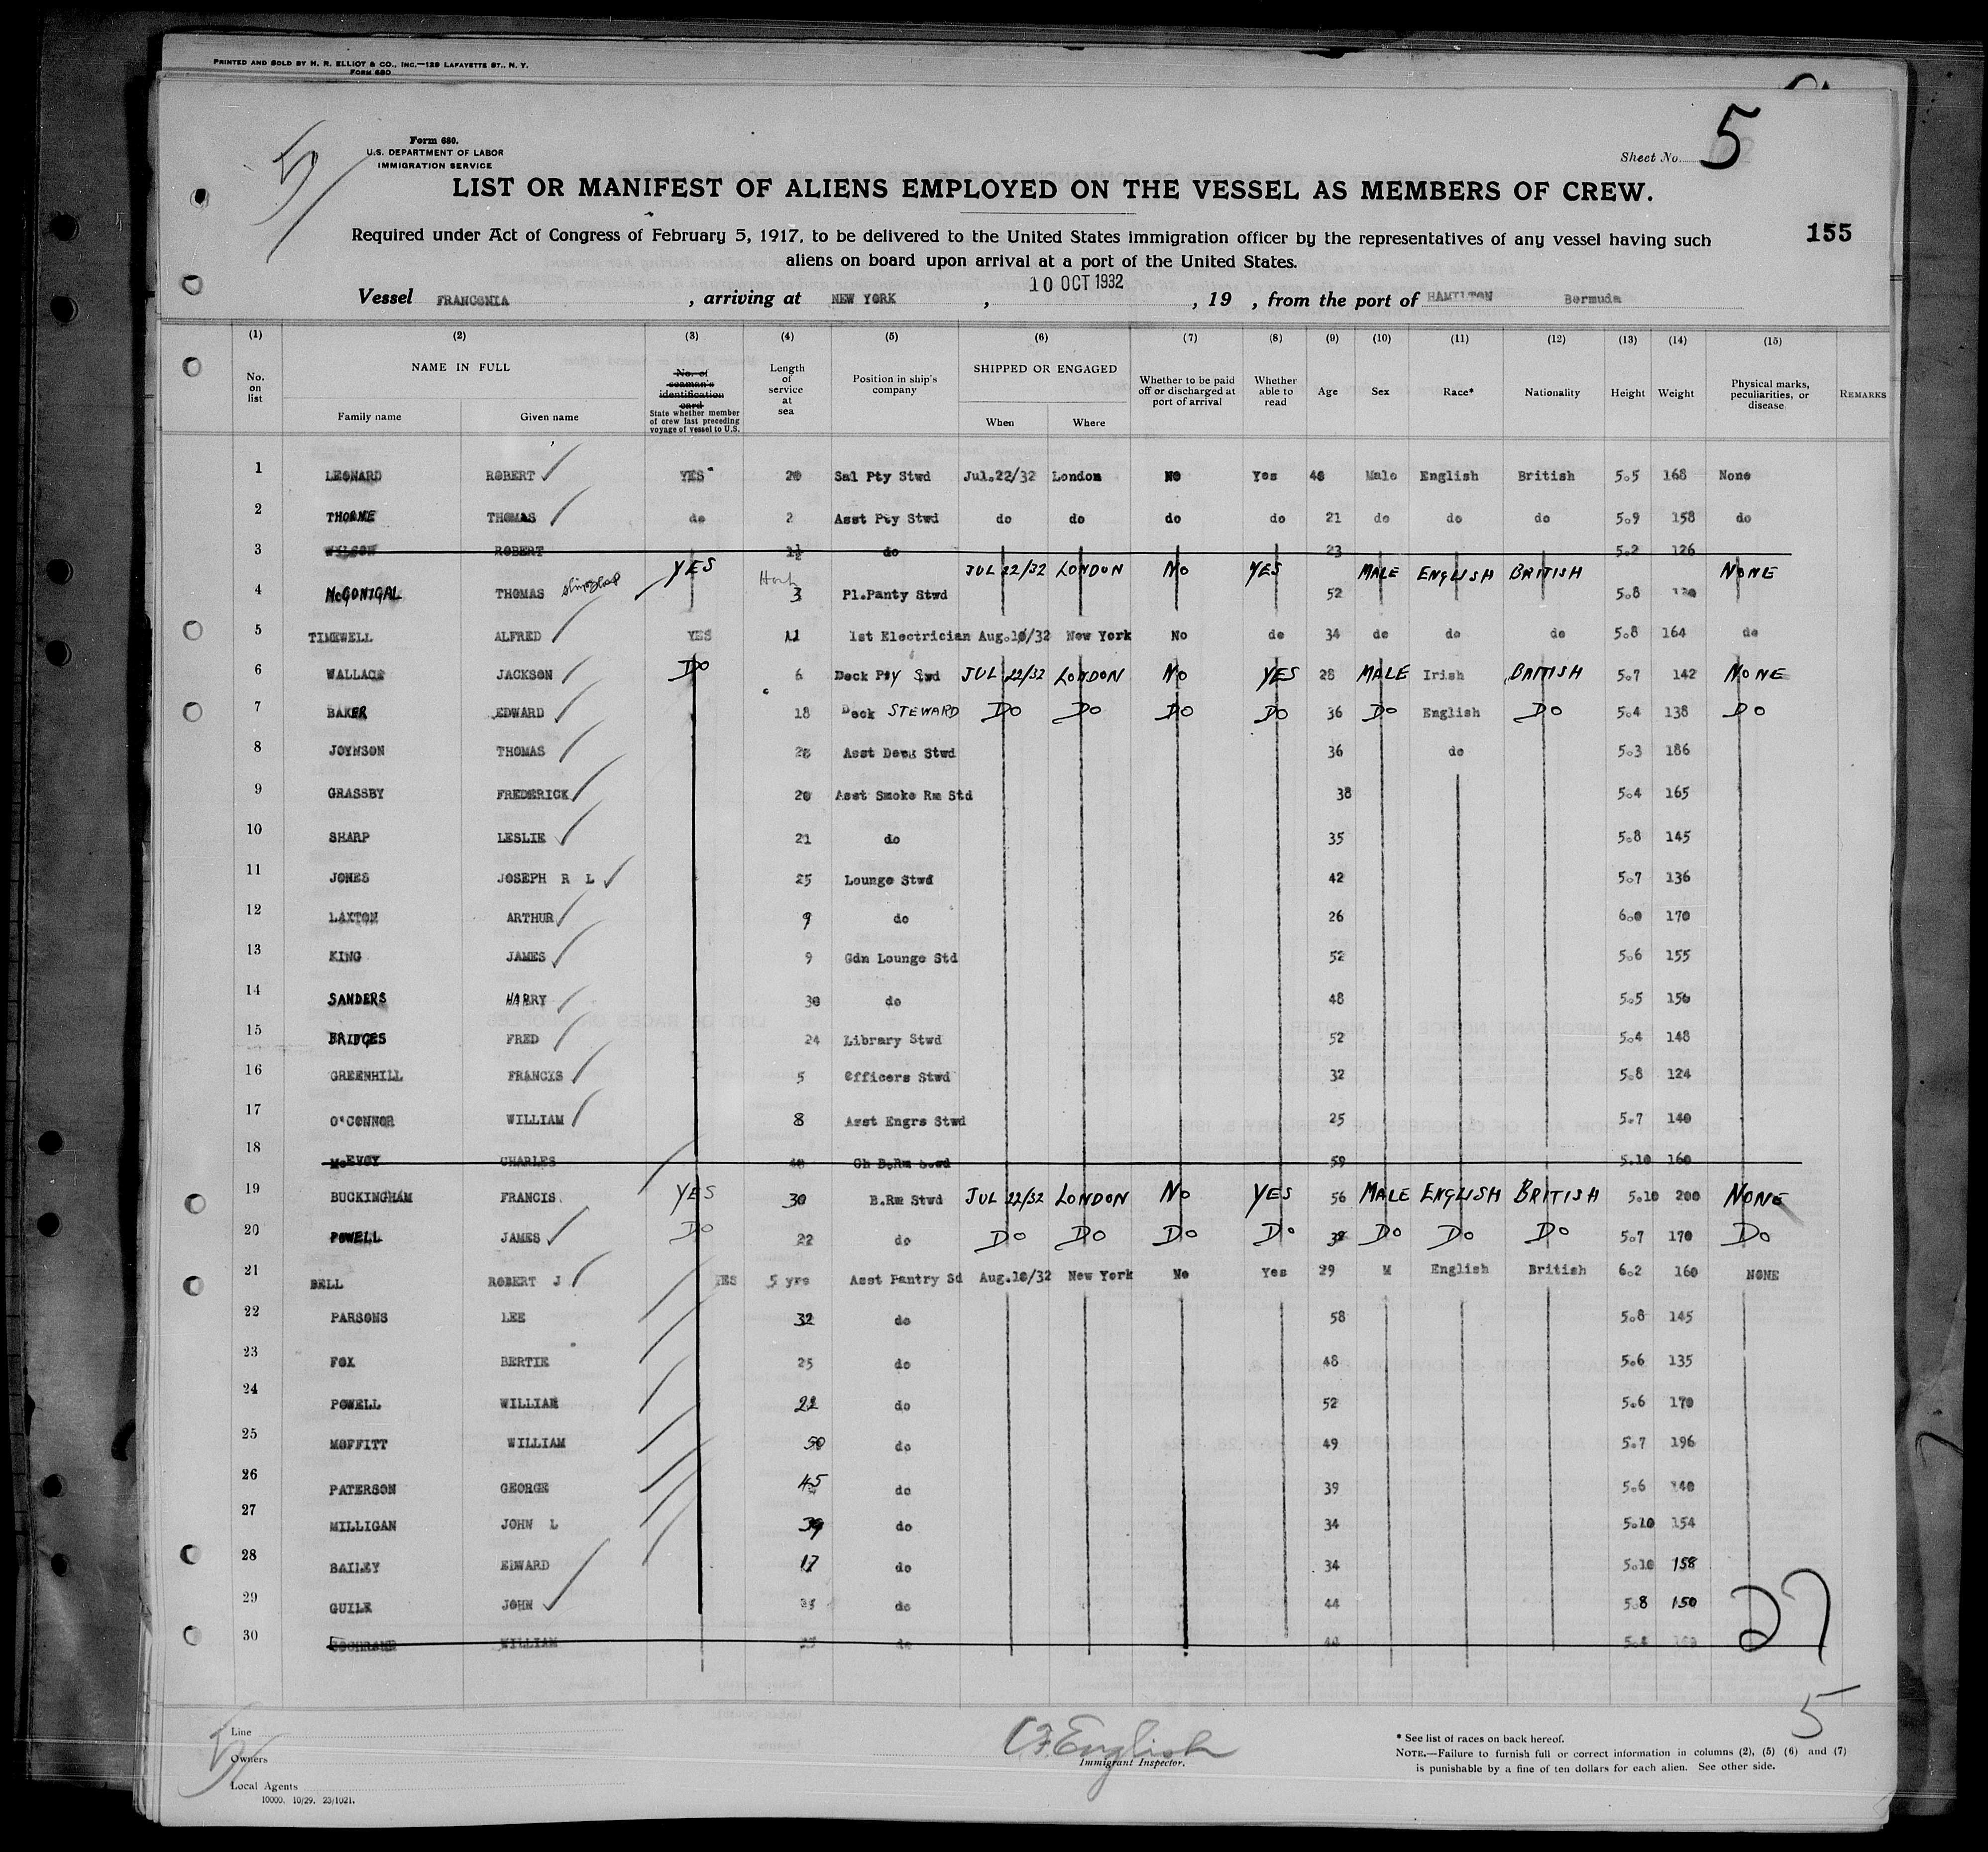 PRINTED AND SOLD BY H. R. ELLIOT & CO., INC.—129 LAFAYETTE ST., N. Y.
FORM 680
5
Form 680.
U.S. DEPARTMENT OF LABOR
IMMIGRATION SERVICE
Sheet No. 5
LIST OR MANIFEST OF ALIENS EMPLOYED ON THE VESSEL AS MEMBERS OF CREW.
Required under Act of Congress of February 5, 1917, to be delivered to the United States immigration officer by the representatives of any vessel having such
aliens on board upon arrival at a port of the United States.
155
Vessel FRANCONIA, arriving at NEW YORK, 10 OCT 1932, 19 , from the port of HAMILTON Bermuda
(1) (2) (3) (4) (5) (6) (7) (8) (9) (10) (11) (12) (13) (14) (15)
No. on list NAME IN FULL Family name Given name No. of seaman's identification card State whether member of crew last preceding voyage of vessel to U.S. Length of service at sea Position in ship's company SHIPPED OR ENGAGED When Where Whether to be paid off or discharged at port of arrival Whether able to read Age Sex Race* Nationality Height Weight Physical marks, peculiarities, or disease REMARKS
1 LEONARD ROBERT YES 20 Sal Pty Stwd Jul.22/32 London NO Yes 48 Male English British 5.5 168 None
2 THORNE THOMAS do 2 Asst Pty Stwd do do do do 21 do do do 5.9 158 do
3 WILSON ROBERT 1½ do 23 5.2 126
YES JUL 22/32 LONDON NO YES MALE ENGLISH BRITISH NONE
4 McGONIGAL THOMAS 3 Pl.Panty Stwd 52 5.8
5 TIMEWELL ALFRED YES 11 1st Electrician Aug.10/32 New York No do 34 do do do 5.8 164 do
6 WALLACE JACKSON DO 6 Deck Pty Swd JUL 22/32 LONDON NO YES 28 MALE Irish BRITISH 5.7 142 NONE
7 BAKER EDWARD 18 Deck STEWARD DO DO DO DO 36 DO English DO 5.4 138 DO
8 JOYNSON THOMAS 28 Asst Deck Stwd 36 do 5.3 186
9 GRASSBY FREDERICK 20 Asst Smoke Rm Std 38 5.4 165
10 SHARP LESLIE 21 do 35 5.8 145
11 JONES JOSEPH R L 25 Lounge Stwd 42 5.7 136
12 LAXTON ARTHUR 9 do 26 6.0 170
13 KING JAMES 9 Gdn Lounge Std 52 5.6 155
14 SANDERS HARRY 30 do 48 5.5 156
15 BRIDGES FRED 24 Library Stwd 52 5.4 148
16 GREENHILL FRANCIS 5 Officers Stwd 32 5.8 124
17 O'CONNOR WILLIAM 8 Asst Engrs Stwd 25 5.7 140
18 McEVOY CHARLES 40 Ch B.Rm Stwd 59 5.10 160
19 BUCKINGHAM FRANCIS YES 30 B.Rm Stwd JUL 22/32 LONDON NO YES 56 MALE ENGLISH BRITISH 5.10 200 NONE
20 POWELL JAMES DO 22 do DO DO DO DO 38 DO DO DO 5.7 170 DO
21 BELL ROBERT J YES 5 yrs Asst Pantry Sd Aug.10/32 New York No Yes 29 M English British 6.2 160 NONE
22 PARSONS LEE 32 do 58 5.8 145
23 FOX BERTIE 25 do 48 5.6 135
24 POWELL WILLIAM 22 do 52 5.6 170
25 MOFFITT WILLIAM 30 do 49 5.7 196
26 PATERSON GEORGE 15 do 39 5.6 140
27 MILLIGAN JOHN L do 34 5.10 154
28 BAILEY EDWARD 17 do 34 5.10 158
29 GUILE JOHN do 44 5.8 150
30 COCHRANE WILLIAM do 44 5.4
27
5
Line
Owners
Local Agents
10000. 10/29. 23/1021.
5
CF English
Immigrant Inspector.
* See list of races on back hereof.
NOTE.—Failure to furnish full or correct information in columns (2), (5) (6) and (7)
is punishable by a fine of ten dollars for each alien. See other side.